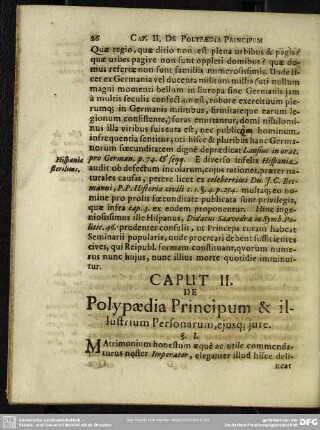 26 CAP. II. DE POLYPÆDIA PRINCIPUM
Quæ regio, quæ ditio non est plena urbibus & pagis?
quæ urbes pagive non sunt oppleti domibus? quæ do-
mus refertæ non sunt familiis numerosissimis. Unde li-
cet ex Germania vel ducenta militum millia suti nullum
magni momenti bellum in Europa sine Germanis jam
à multis seculis confectum est, robore exercituum ple-
rumq; in Germanis militibus, firmitateque earum le-
gionum consistente,) foras emittantur, domi nihilomi-
nus illa viribus suis tuta est, nec publicam hominum
infrequentia sentim; uti hisce & pluribus hanc Germano-
rum fœcunditatem digne deprædicat Lansius in orat.
pro German. p. 74. & seqq. E diverso infelix Hispania
Hispania
sterilior.
audit ob defectum incolarum, cujus rationes, præter na-
turales causas, petere licet ex celeberrimi Dn. J. C. Bec-
manni, P.P. Historia civili c. 1. §. 4. p. 254. multaq; eo no-
mine pro prolis fœcunditate publicata sunt privilegia,
quæ infra cap. 3. ex eodem proponentur. Hinc inge-
niosissimus ille Hispanus, Didacus Saavedra in Symb. Po-
litic. 46. prudenter consulit, ut Princeps curam habeat
Seminarii popularis, unde procreari debent sufficientes
cives, qui Reipubl. formam constituant, quorum nume-
rus nunc hujus, nunc illius morte quotidie imminui-
tur.
CAPUT II.
DE
Polypædia Principum & il-
lustrium Personarum, ejusq; jure.
§. I.
Matrimonium honestum æquè ac utile commenda-
turus noster Imperator, eleganter illud hisce deli-
neat